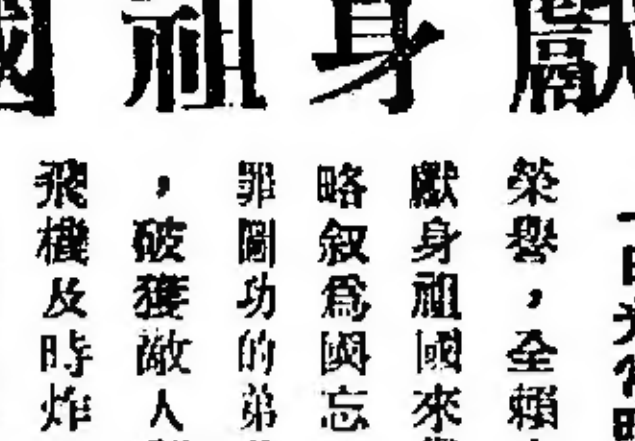 獻身祖國
榮譽，全賴
獻身祖國來
略叙爲國忘
罪圖功的弟
，破獲敵人
飛機及時炸